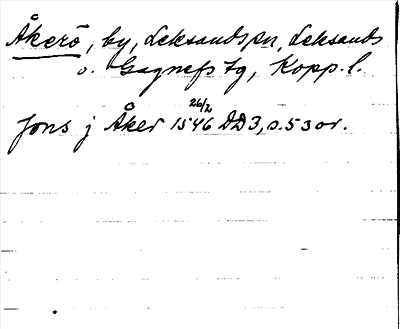 Åkerö, by, Leksands sn, Leksands
o. Gagnefs tg, Kopp. l.
Jons j Åker 1546 26/2 DD3, s. 53 or.